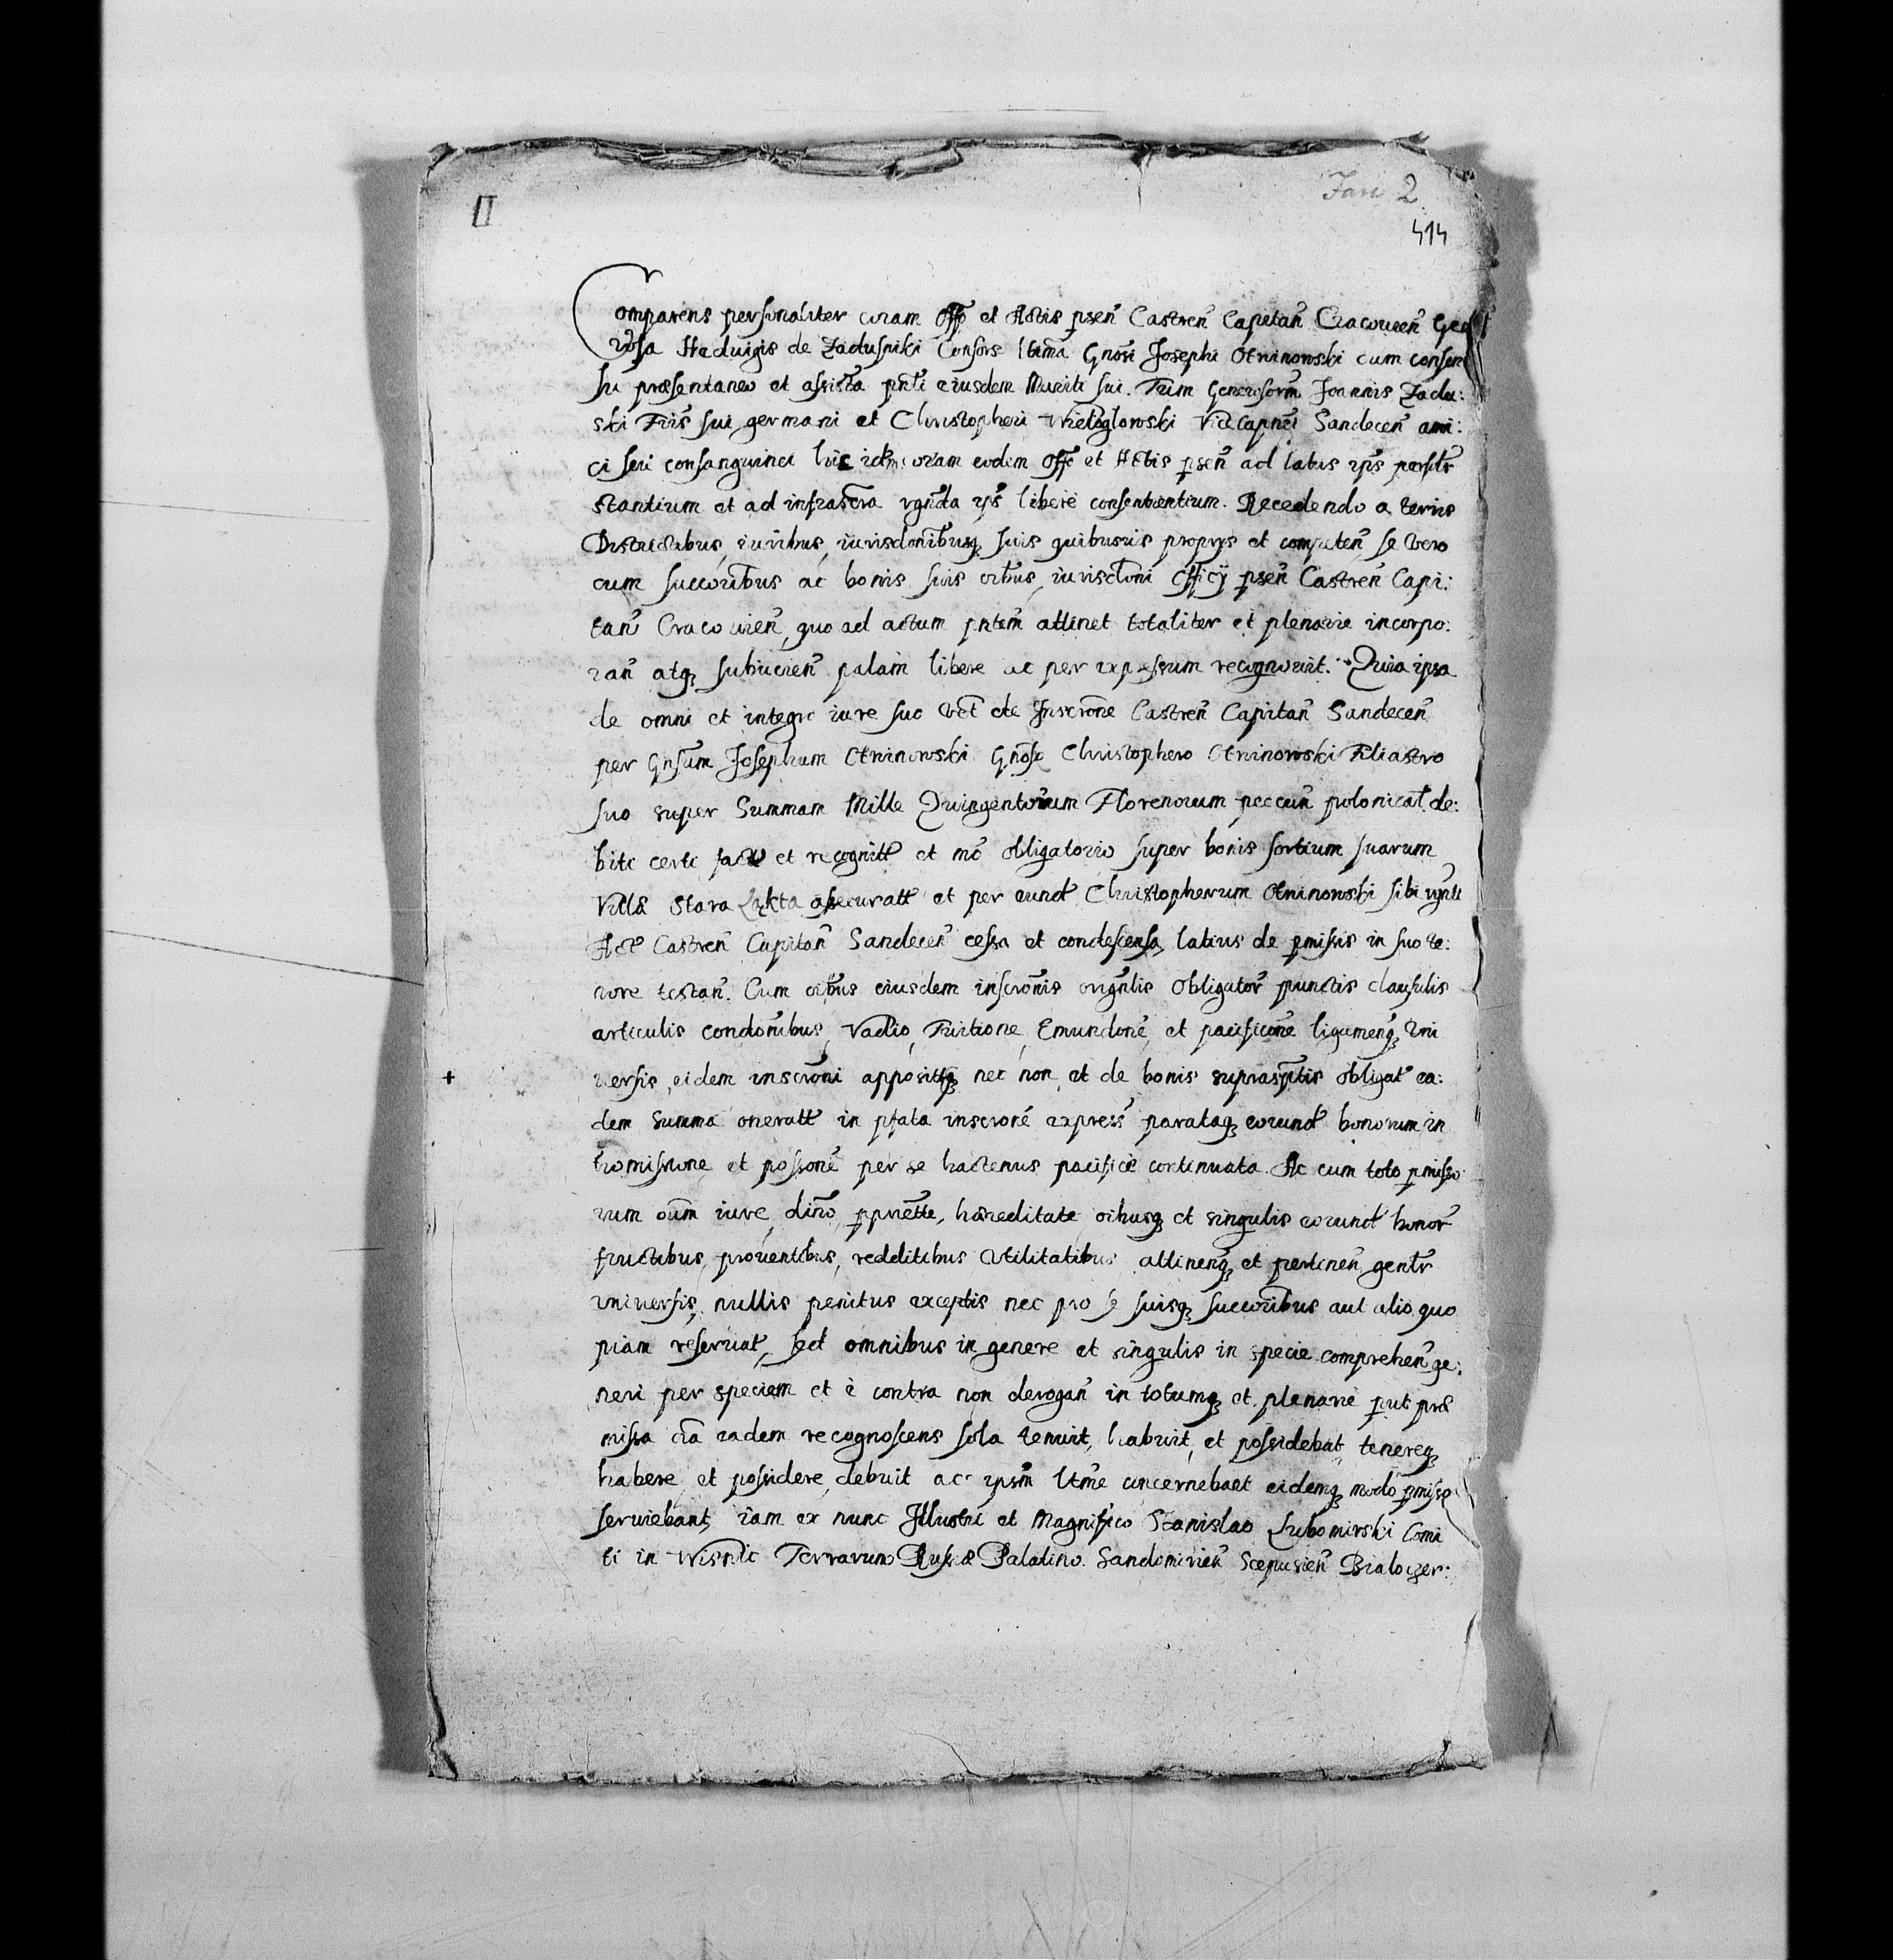 II
Jan 2
414
Comparens personaliter coram Offo et Actis psen Castren Capitan Cracovien Gen
rosa Hadvigis de Zadusniki Consors ltima Gnosi Josephi Otwinowski cum consen
su præsentaneo et assista pnti eiusdem Mariti sui. Tum Generosorm Joannis Zadu:
ski Fris sui germani et Christopheri Wieloglowski ViceCapnei Sandecen ami:
ci seu consanguinei hic idm coram eodem Offo et Actis psen ad latus ips persolr
stantium et ad infrascra rgnda ips libere consentientium. Recedendo a terris
Districtibus, iuribus, iurisdonibusq suis quibusvis proprys et competen, se vero
cum succoribus ac bonis suis oibus, iurisctoni Officij psen Castren Capi:
tan Cracovien, quo ad actum pntem attinet totaliter et plenarie incorpo:
ran atq subiicien palam libere ac per expressum recognovit. Quia ipsa
de omni et integro iure suo vel de Inscrone Castren Capitan Sandecen
per Gnsum Josephum Otwinowski Gnoso Christophero Otwinowski Filiastro
suo super Summam Mille Quingentorum Florenorum peccun polonical de:
biti certi facto et recognitt et mo obligatorio super bonis sortium suarum
Villæ Stara Łąkta assecuratt et per eund Christopherum Otwinowski sibi
Act Castren Capitan Sandecen cessa et condescensa, latius de pmissis in suo te:
nore testan. Cum oibus eiusdem inscronis orignlis Obligator punctis clausulis
articulis condonibus, Vadio, Tuitione, Emundone, et pacificone ligamenq Uni
versis, eidem inscroni appositisq nec non et de bonis suprasptis obligat ea:
dem Summa oneratt in pfata inscrone express parataq eorund bonorum in
tromissione et possone per se hactenus pacifice continuata. Ac cum toto pmisso
rum oum iure, dino, ppriette, hæreditate oibusq et singulis eorund bonor
fructibus, proventibus, redditibus Utilitatibus attinenq et pertinen genlr
universis, nullis penitus exceptis nec pro se suisq succoribus aut alio quo
piam reservat, sed omnibus in genere et singulis in specie comprehen ge:
neri per speciem et è contra non derogan in totumq et plenarie put præ
missa oia eadem recognoscens sola tenuit, habuit, et possidebat tenereq
habere et possidere debuit ac ipsm ltme concernebant eidemq modo pmisso
serviebant, iam ex nunc Illustri et Magnifico Stanislao Lubomirski Comi
ti in Wisnic Terrarum Russiæ Palatino. Sandomirien Scepusien Bialocer: